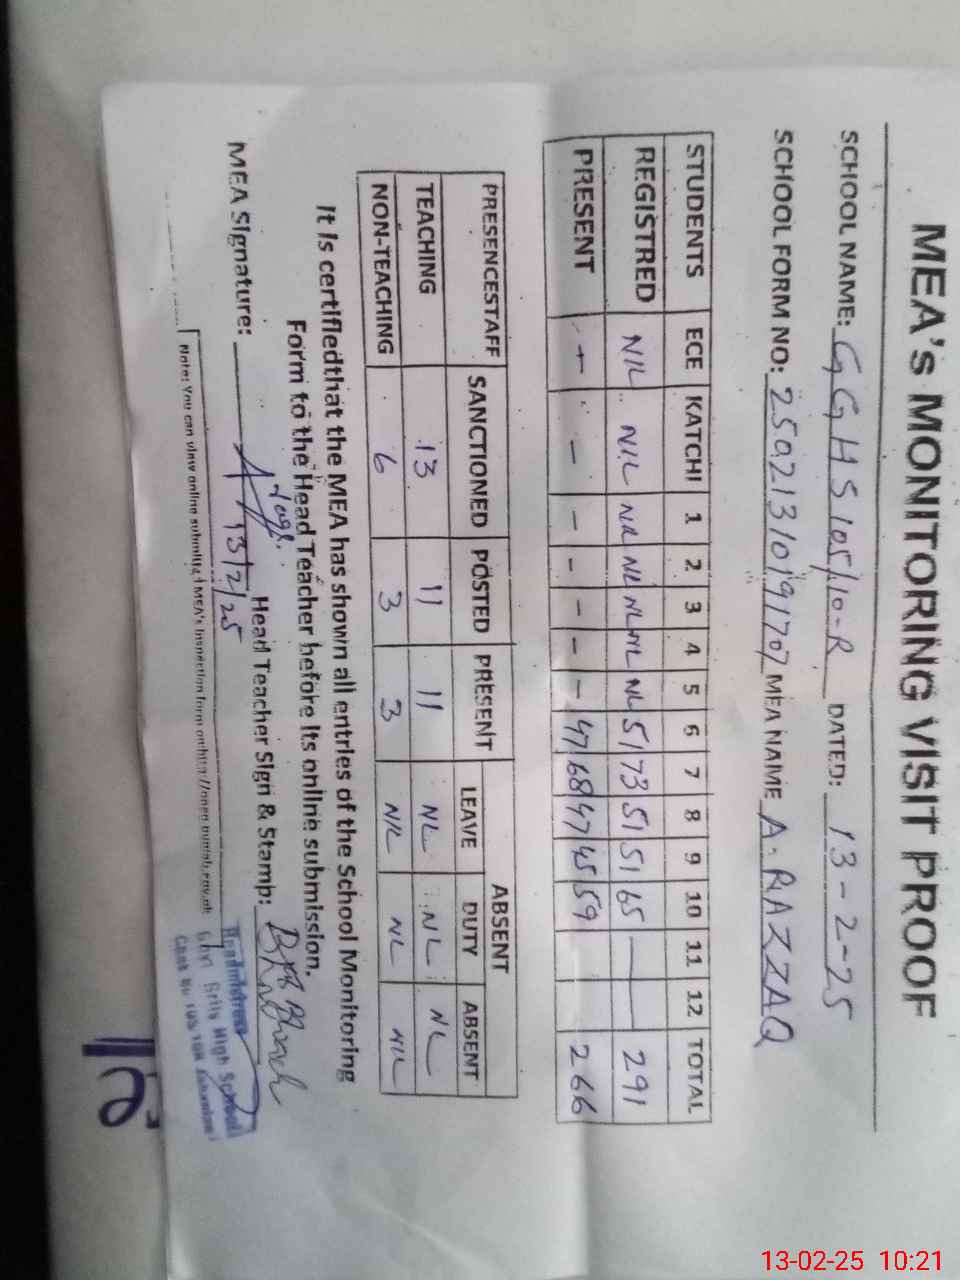 MEA's MONITORING VISIT PROOF
SCHOOL NAME: GGHS 105/10-R DATED: 13-2-25
SCHOOL FORM NO: 25021310191707 MEA NAME A. RAZZAQ
STUDENTS ECE KATCHI 1 2 3 4 5 6 7 8 9 10 11 12 TOTAL
REGISTRED NIL NIL NIL NL NL NL NL 51 73 51 51 65 — — 291
PRESENT - - - - - - - 47 68 47 45 59 266
PRESENCESTAFF SANCTIONED POSTED PRESENT ABSENT
LEAVE DUTY ABSENT
TEACHING 13 11 11 NL NL NL
NON-TEACHING 6 3 3 NIL NL NIL
It is certifiedthat the MEA has shown all entries of the School Monitoring
Form to the Head Teacher before its online submission.
MEA Signature: 13/2/25 Head Teacher Sign & Stamp:
Note: You can view online submitted MEA's Inspection form on
Headmistress
Govt Girls High School
Chak No 105/10R
13-02-25 10:21